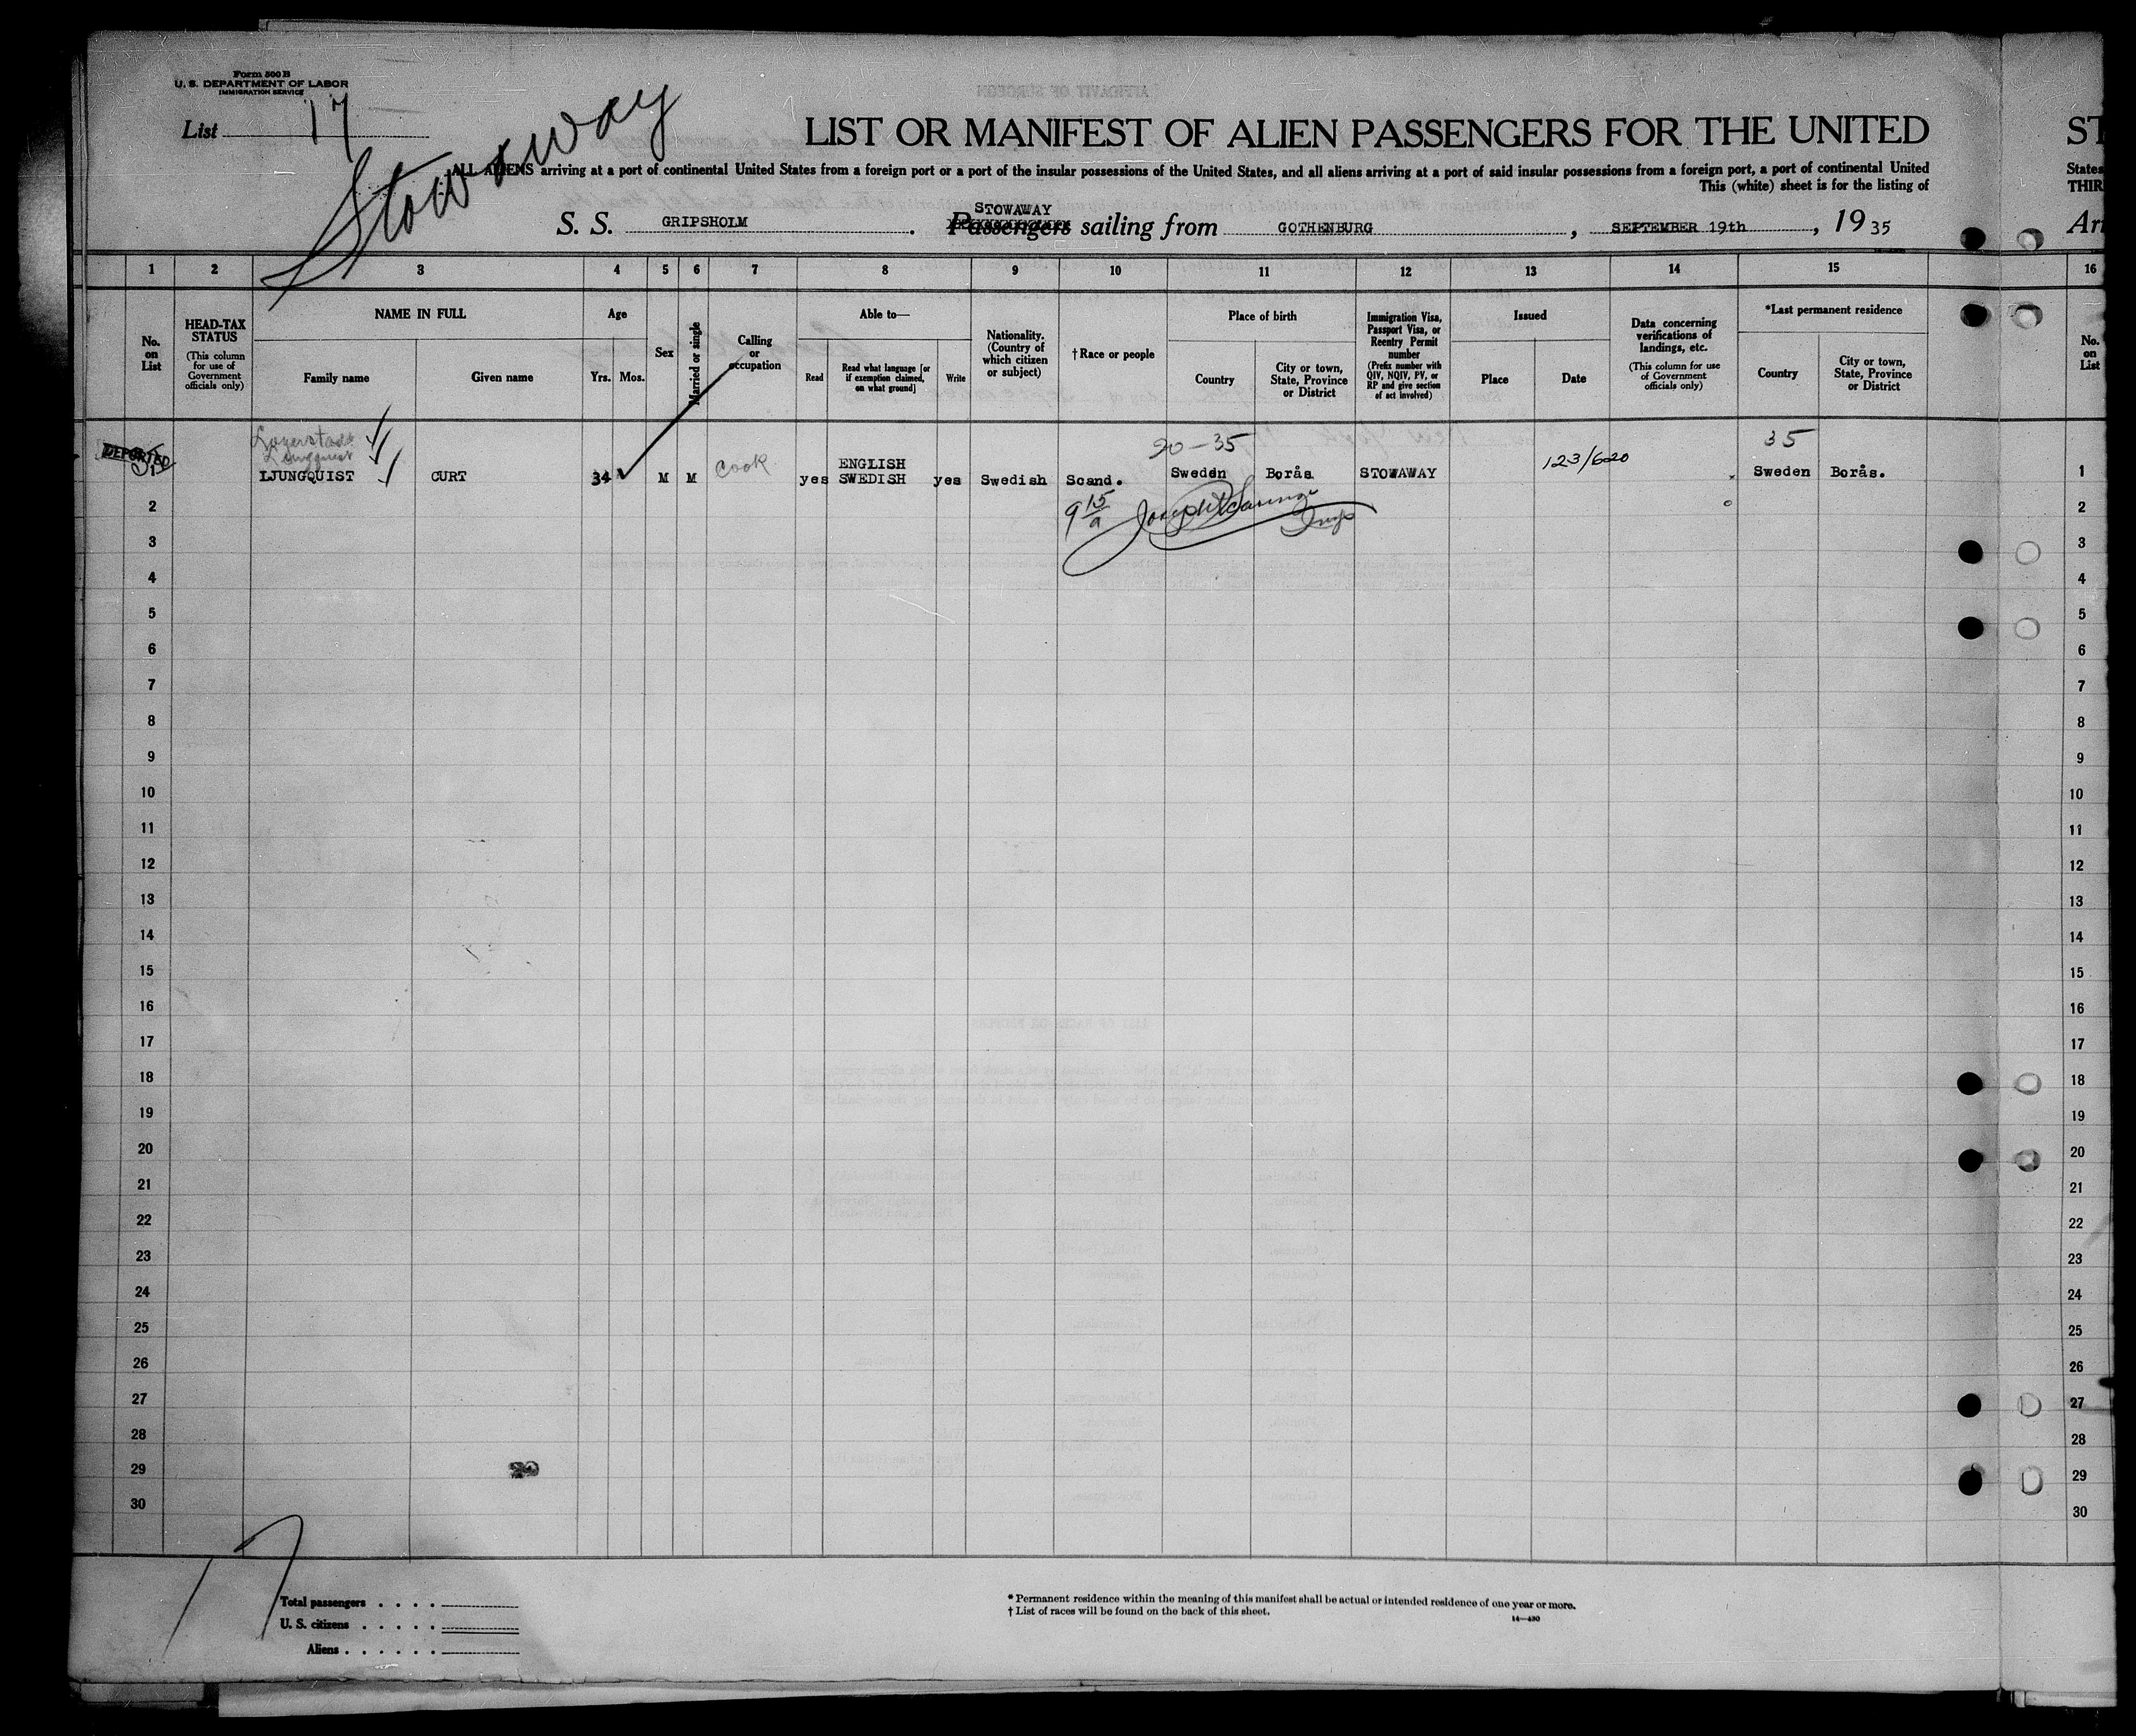 Form 500 B
U. S. DEPARTMENT OF LABOR
IMMIGRATION SERVICE
List 17
Stowaway
LIST OR MANIFEST OF ALIEN PASSENGERS FOR THE UNITED ST
ALL ALIENS arriving at a port of continental United States from a foreign port or a port of the insular possessions of the United States, and all aliens arriving at a port of said insular possessions from a foreign port, a port of continental United States
This (white) sheet is for the listing of THIR
STOWAWAY
S. S. GRIPSHOLM . Passengers sailing from GOTHENBURG , SEPTEMBER 19th , 19 35 Arr
1 2 3 4 5 6 7 8 9 10 11 12 13 14 15 16
No. on List
HEAD-TAX STATUS
(This column for use of Government officials only)
NAME IN FULL
Family name
Given name
Age
Yrs. Mos.
Sex
Married or single
Calling or occupation
Able to—
Read
Read what language [or if exemption claimed, on what ground]
Write
Nationality. (Country of which citizen or subject)
†Race or people
Place of birth
Country
City or town, State, Province or District
Immigration Visa, Passport Visa, or Reentry Permit number
(Prefix number with QIV, NQIV, PV, or RP and give section of act involved)
Issued
Place
Date
Data concerning verifications of landings, etc.
(This column for use of Government officials only)
*Last permanent residence
Country
City or town, State, Province or District
No. on List
20-35
35
DEPORTED
123/620
ENGLISH
LJUNGQUIST CURT 34 M M Cook yes SWEDISH yes Swedish Scand. Sweden Borås STOWAWAY Sweden Borås. 1
9 15/a
2 2
3 3
4 4
5 5
6 6
7 7
8 8
9 9
10 10
11 11
12 12
13 13
14 14
15 15
16 16
17 17
18 18
19 19
20 20
21 21
22 22
23 23
24 24
25 25
26 26
27 27
28 28
29 29
30 30
17
Total passengers . . . .
U. S. citizens . . . . .
Aliens . . . . . .
* Permanent residence within the meaning of this manifest shall be actual or intended residence of one year or more.
† List of races will be found on the back of this sheet.
14—430